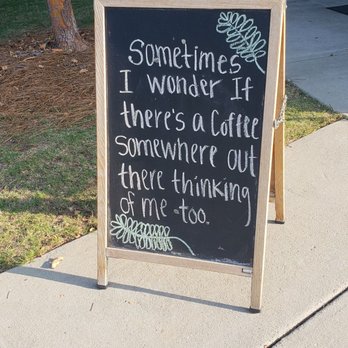 Sometimes
I wonder If
there's a Coffee
somewhere out
there thinking
of me too.